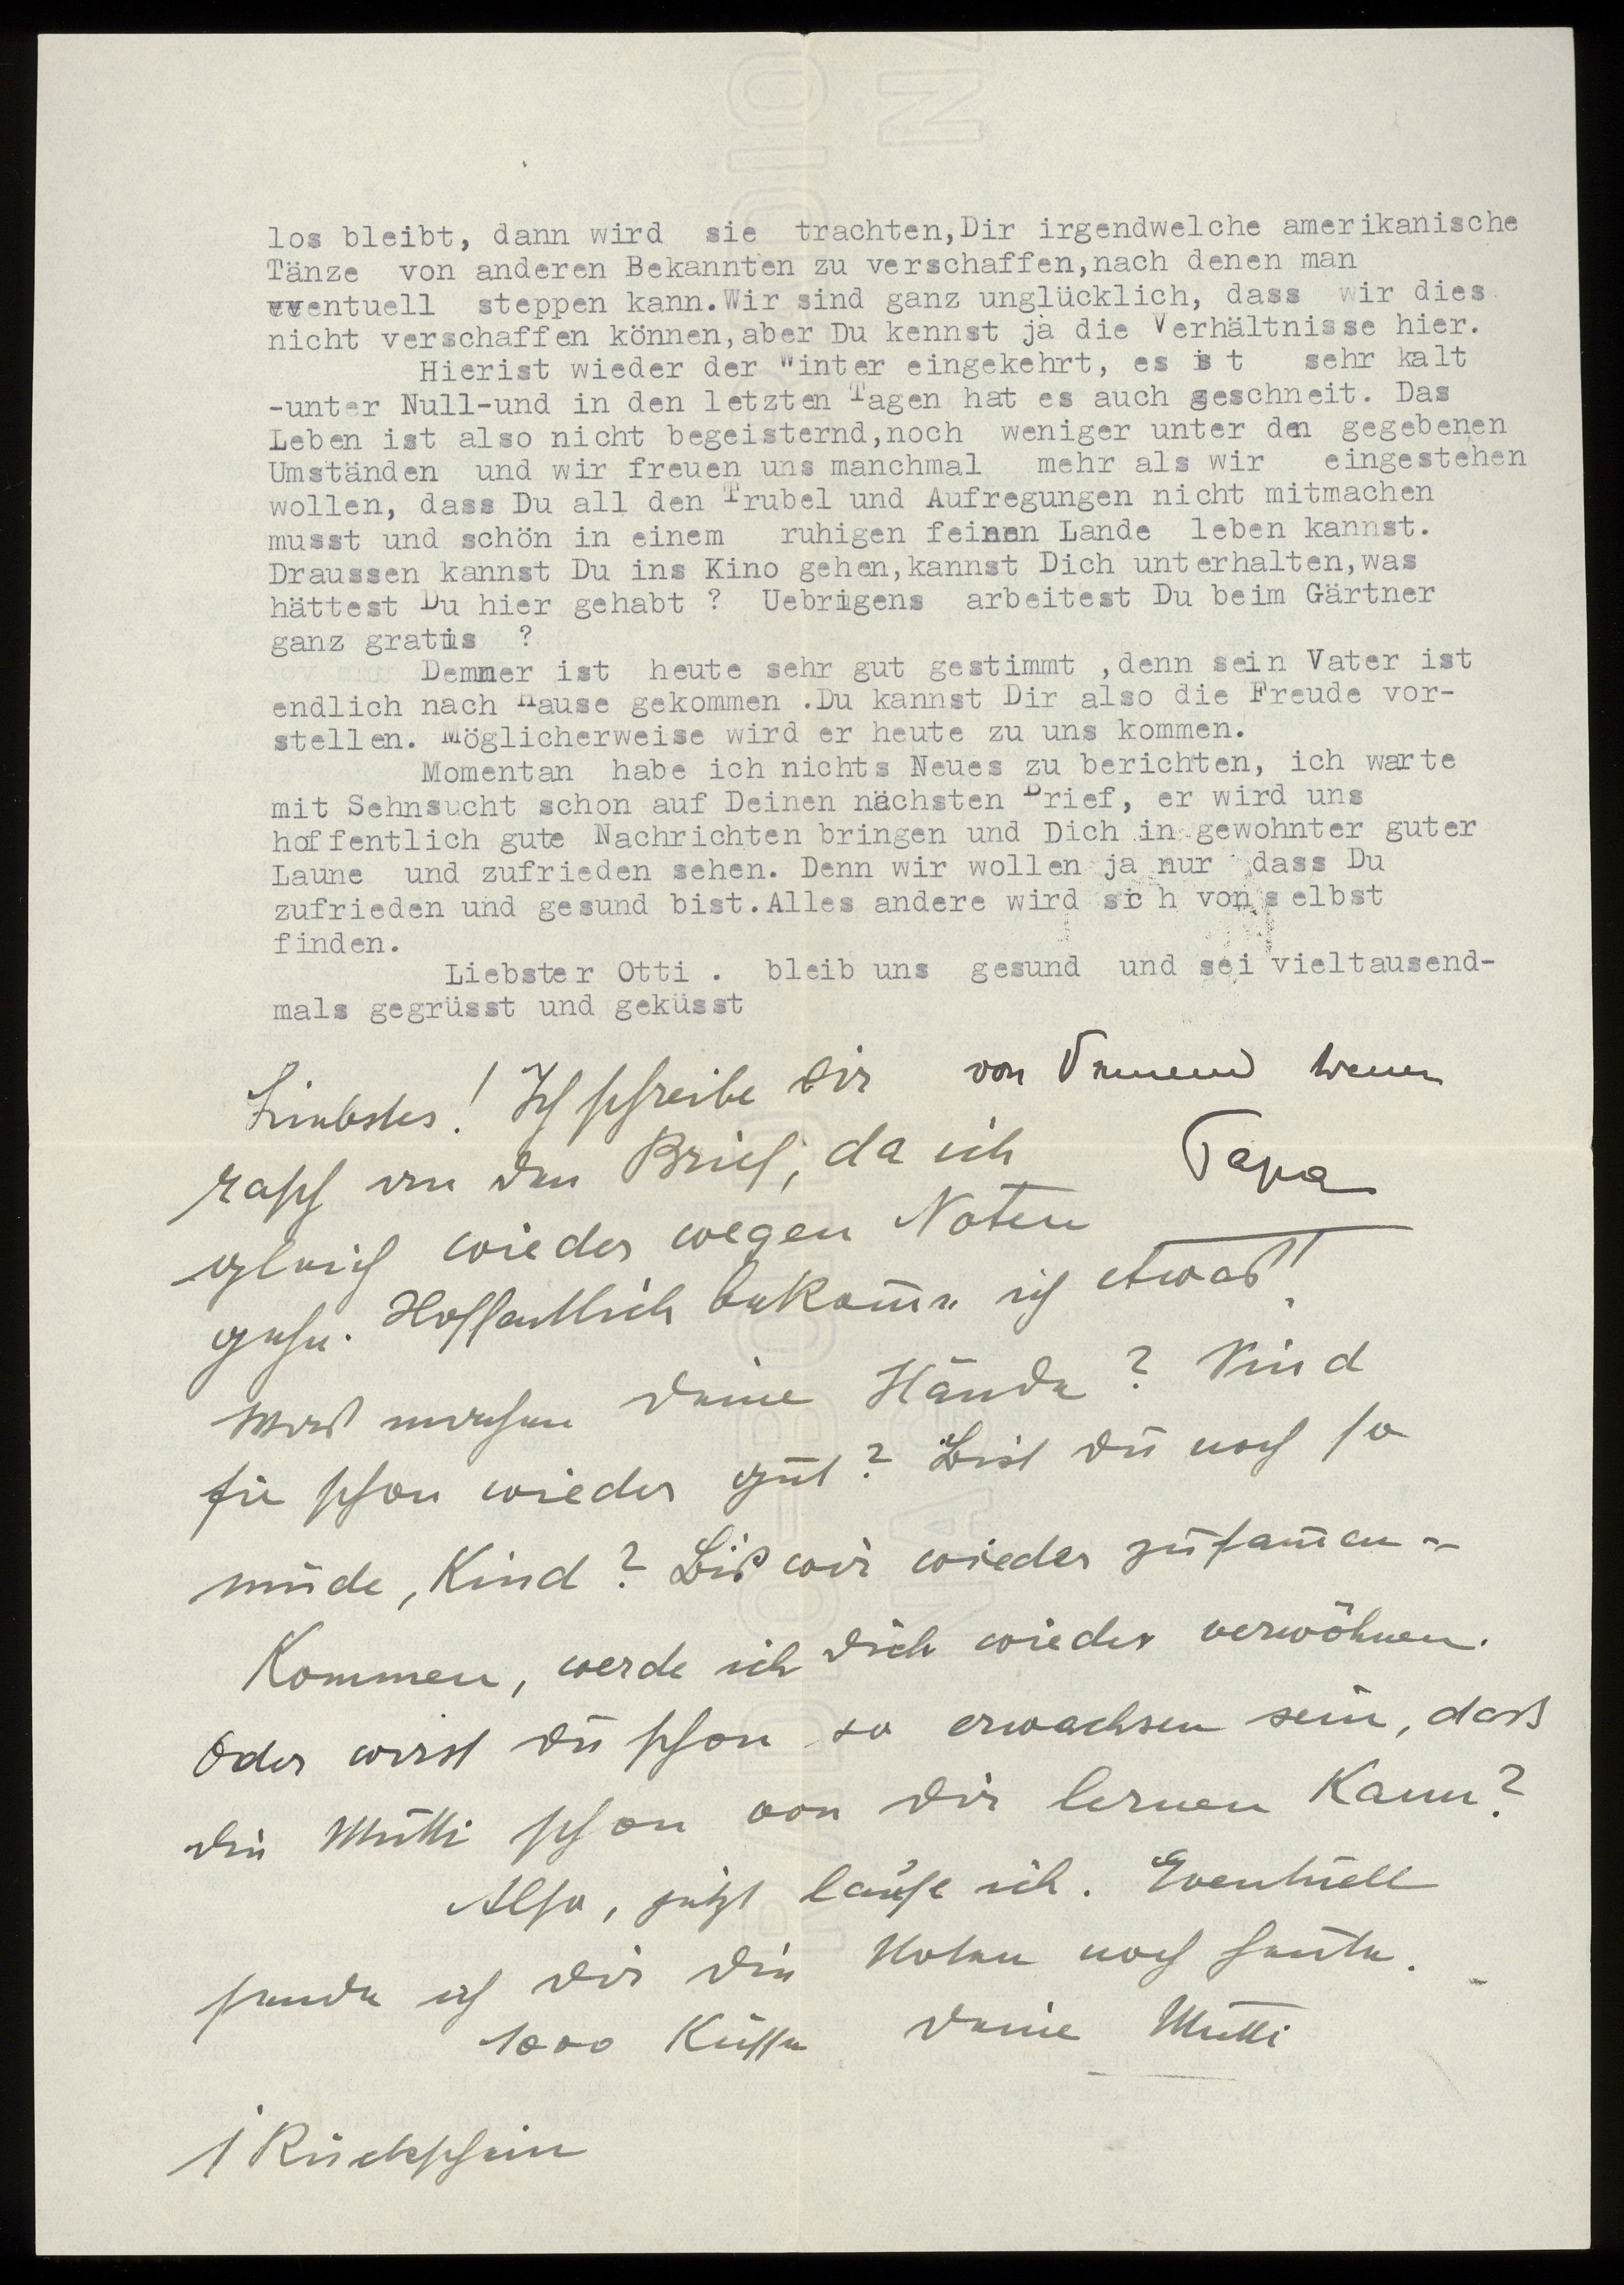 los bleibt, dann wird sie trachten,Dir irgendwelche amerikanische
Tänze von anderen Bekannten zu verschaffen,nach denen man
eventuell steppen kann.Wir sind ganz unglücklich, dass wir dies
nicht verschaffen können,aber Du kennst ja die Verhältnisse hier.
Hierist wieder der Winter eingekehrt, es ist sehr kalt
-unter Null-und in den letzten Tagen hat es auch geschneit. Das
Leben ist also nicht begeisternd,noch weniger unter den gegebenen
Umständen und wir freuen uns manchmal mehr als wir eingestehen
wollen, dass Du all den Trubel und Aufregungen nicht mitmachen
musst und schön in einem ruhigen feinen Lande leben kannst.
Draussen kannst Du ins Kino gehen,kannst Dich unterhalten,was
hättest Du hier gehabt ? Uebrigens arbeitest Du beim Gärtner
ganz gratis ?
Demmer ist heute sehr gut gestimmt ,denn sein Vater ist
endlich nach Hause gekommen .Du kannst Dir also die Freude vor-
stellen. Möglicherweise wird er heute zu uns kommen.
Momentan habe ich nichts Neues zu berichten, ich warte
mit Sehnsucht schon auf Deinen nächsten Brief, er wird uns
hoffentlich gute Nachrichten bringen und Dich in gewohnter guter
Laune und zufrieden sehen. Denn wir wollen ja nur dass Du
zufrieden und gesund bist.Alles andere wird sich von selbst
finden.
Liebster Otti . bleib uns gesund und sei vieltausend-
mals gegrüsst und geküsst
von Deinem treuen
Papa
Liebstes! Ich schreibe Dir
rasch an den Brief, da ich
gleich wieder wegen Noten
gehe. Hoffentlich bekom̅e ich etwas!
Was machen Deine Hände? Sind
sie schon wieder gut? Bist Du noch so
müde, Kind? Bis wir wieder zusam̅en-
kommen, werde ich Dich wieder verwöhnen.
Oder wirst Du schon so erwachsen sein, dass
die Mutti schon von Dir lernen kann?
Also, jetzt laufe ich. Eventuell
sende ich Dir die Noten noch heute.
1000 Küsse Deine Mutti
1 Rückschein